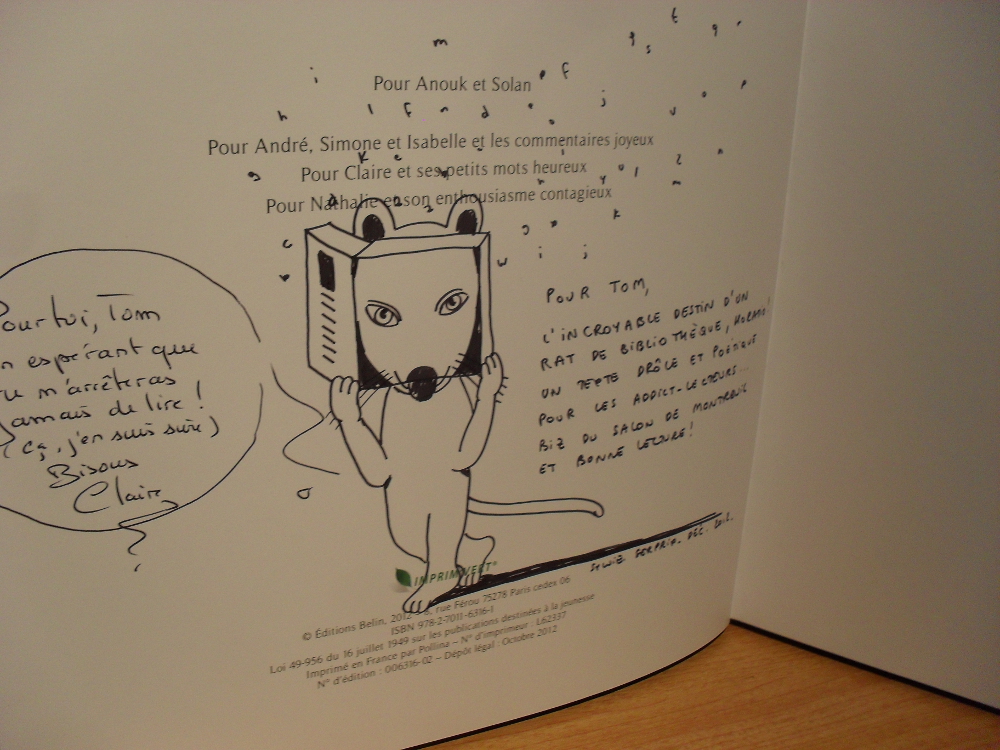 Pour Anouk et Solan
Pour André, Simone et Isabelle et les commentaires joyeux
Pour Claire et ses petits mots heureux
Pour Nathalie et son enthousiasme contagieux
POUR TOM,
L'INCROYABLE DESTIN D'UN
RAT DE BIBLIOTHÈQUE,
UN TEXTE DRÔLE ET POÉTIQUE
POUR LES ADDICT-LECTEURS...
BIZ DU SALON DE MONTREUIL
ET BONNE LECTURE!
DEC. 2012.
Pour toi, Tom
n espérant que
tu n'arrêteras
jamais de lire !
(ça, j'en suis sûre)
Bisous
Claire
IMPRIM'VERT®
© Éditions Belin, 2012 8, rue Férou 75278 Paris cedex 06
ISBN 978-2-7011-6316-1
Loi 49-956 du 16 juillet 1949 sur les publications destinées à la jeunesse
Imprimé en France par Pollina – N° d'imprimeur : L62337
N° d'édition : 006316-02 – Dépôt légal : Octobre 2012